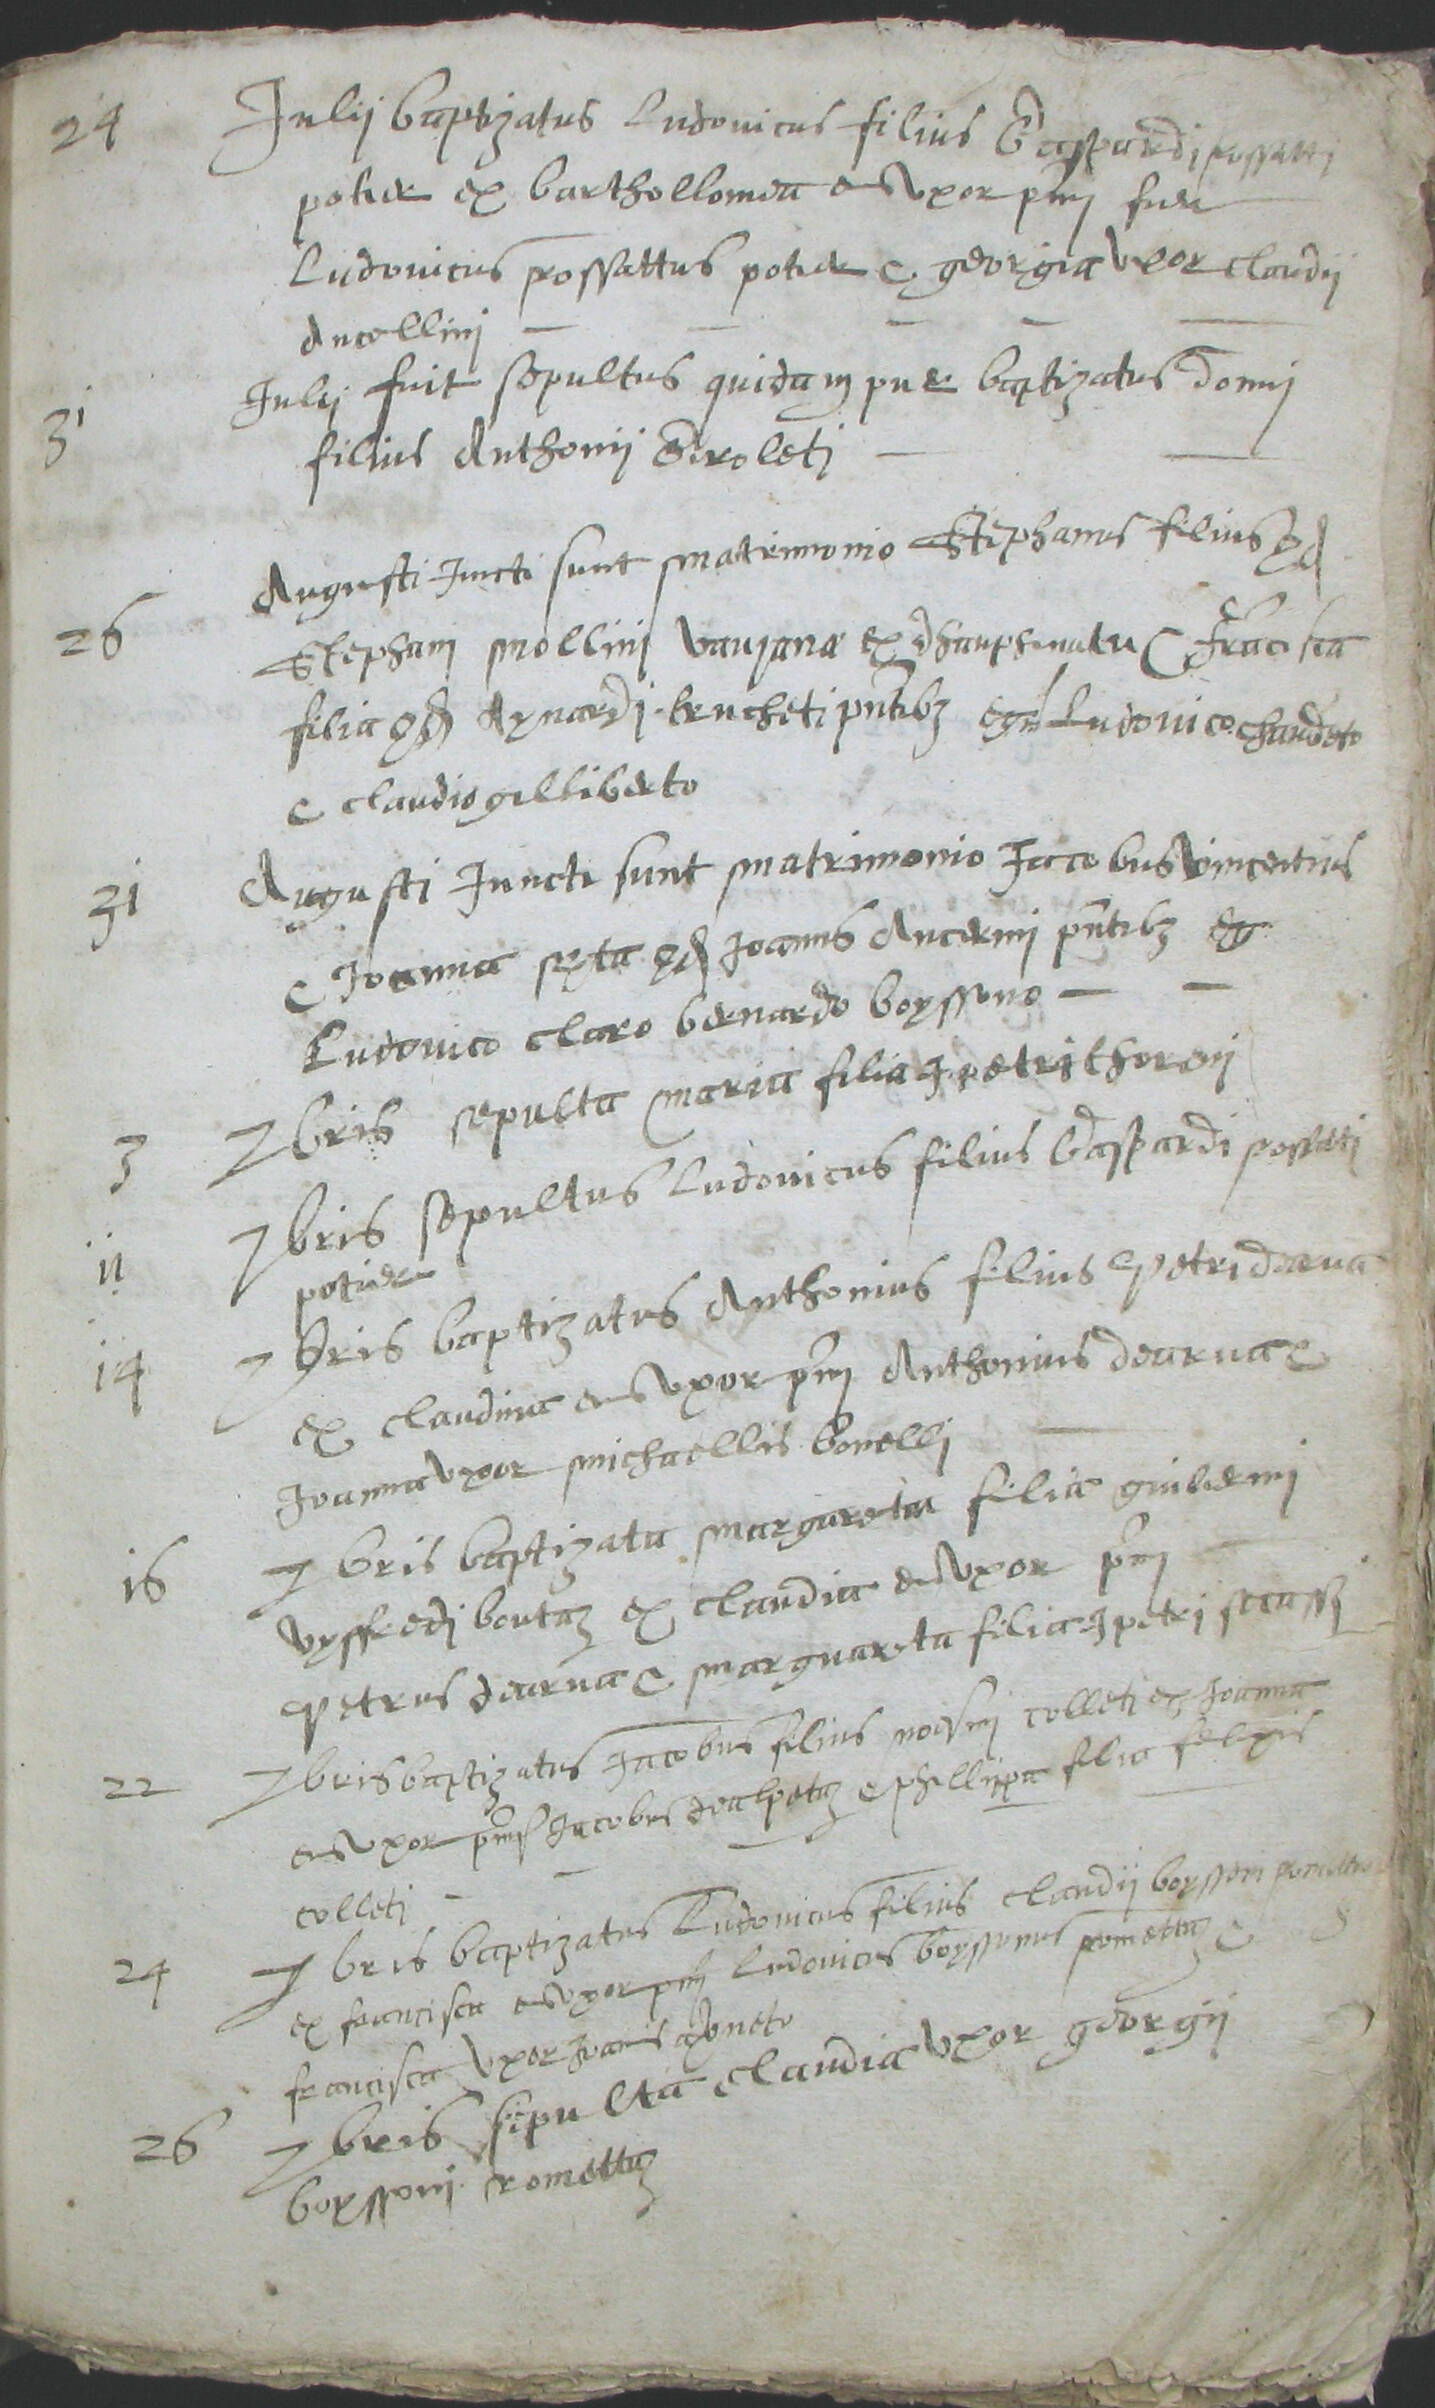 24 Julij baptizatus Ludovicus filius Gaspardi rossatti
potier ex barthollomea eius uxor pnij fuer
Ludovicus rossattus potier & georgia uxor claudij
Ancellinj
31 Julij fuit sepultus quidam puer baptizatus domj
filius Anthonij Giroletj
26 Augusti Juncti sunt matrimonio Stephanus filius qd
Stephanj mollinj vaujana ex dhauphinatu & Francisca
filia qd Aynardj trucheti pntibz Ludovico
& claudio gilliberto
31 Augusti Juncti sunt matrimonio Jacobus Vincentius
& Joanna qd Joannis Ancermj pntibz eg
Ludovico claro bernardo boyssono
3 7bris sepulta maria filia J petri thorenj
11 7bris sepultus Ludovicus filius Gaspardi rossati
potier
14 7bris baptizatus Anthonius filius petri dearva
ex claudina eius uxor pnj Anthonius dearva &
Joanna uxor michaellis bonelli
16 7bris baptizata margareta filia guilermj
vyffredj boutaz ex claudia eius uxor pnj
petrus dearva & marguareta filia J petri
22 7bris baptizatus Jacobus filius colleti ex Joanna
eius uxor pnij Jacobus dealpetaz & phillippa filia felixis
colleti
24 7bris baptizatus Ludovicus filius claudij boyssoni
ex francisca eius uxor pnij Ludovicus boyssonus romettaz &
francisca uxor Joanis
26 7bris sepulta claudia uxor georgij
boyssonj romettaz